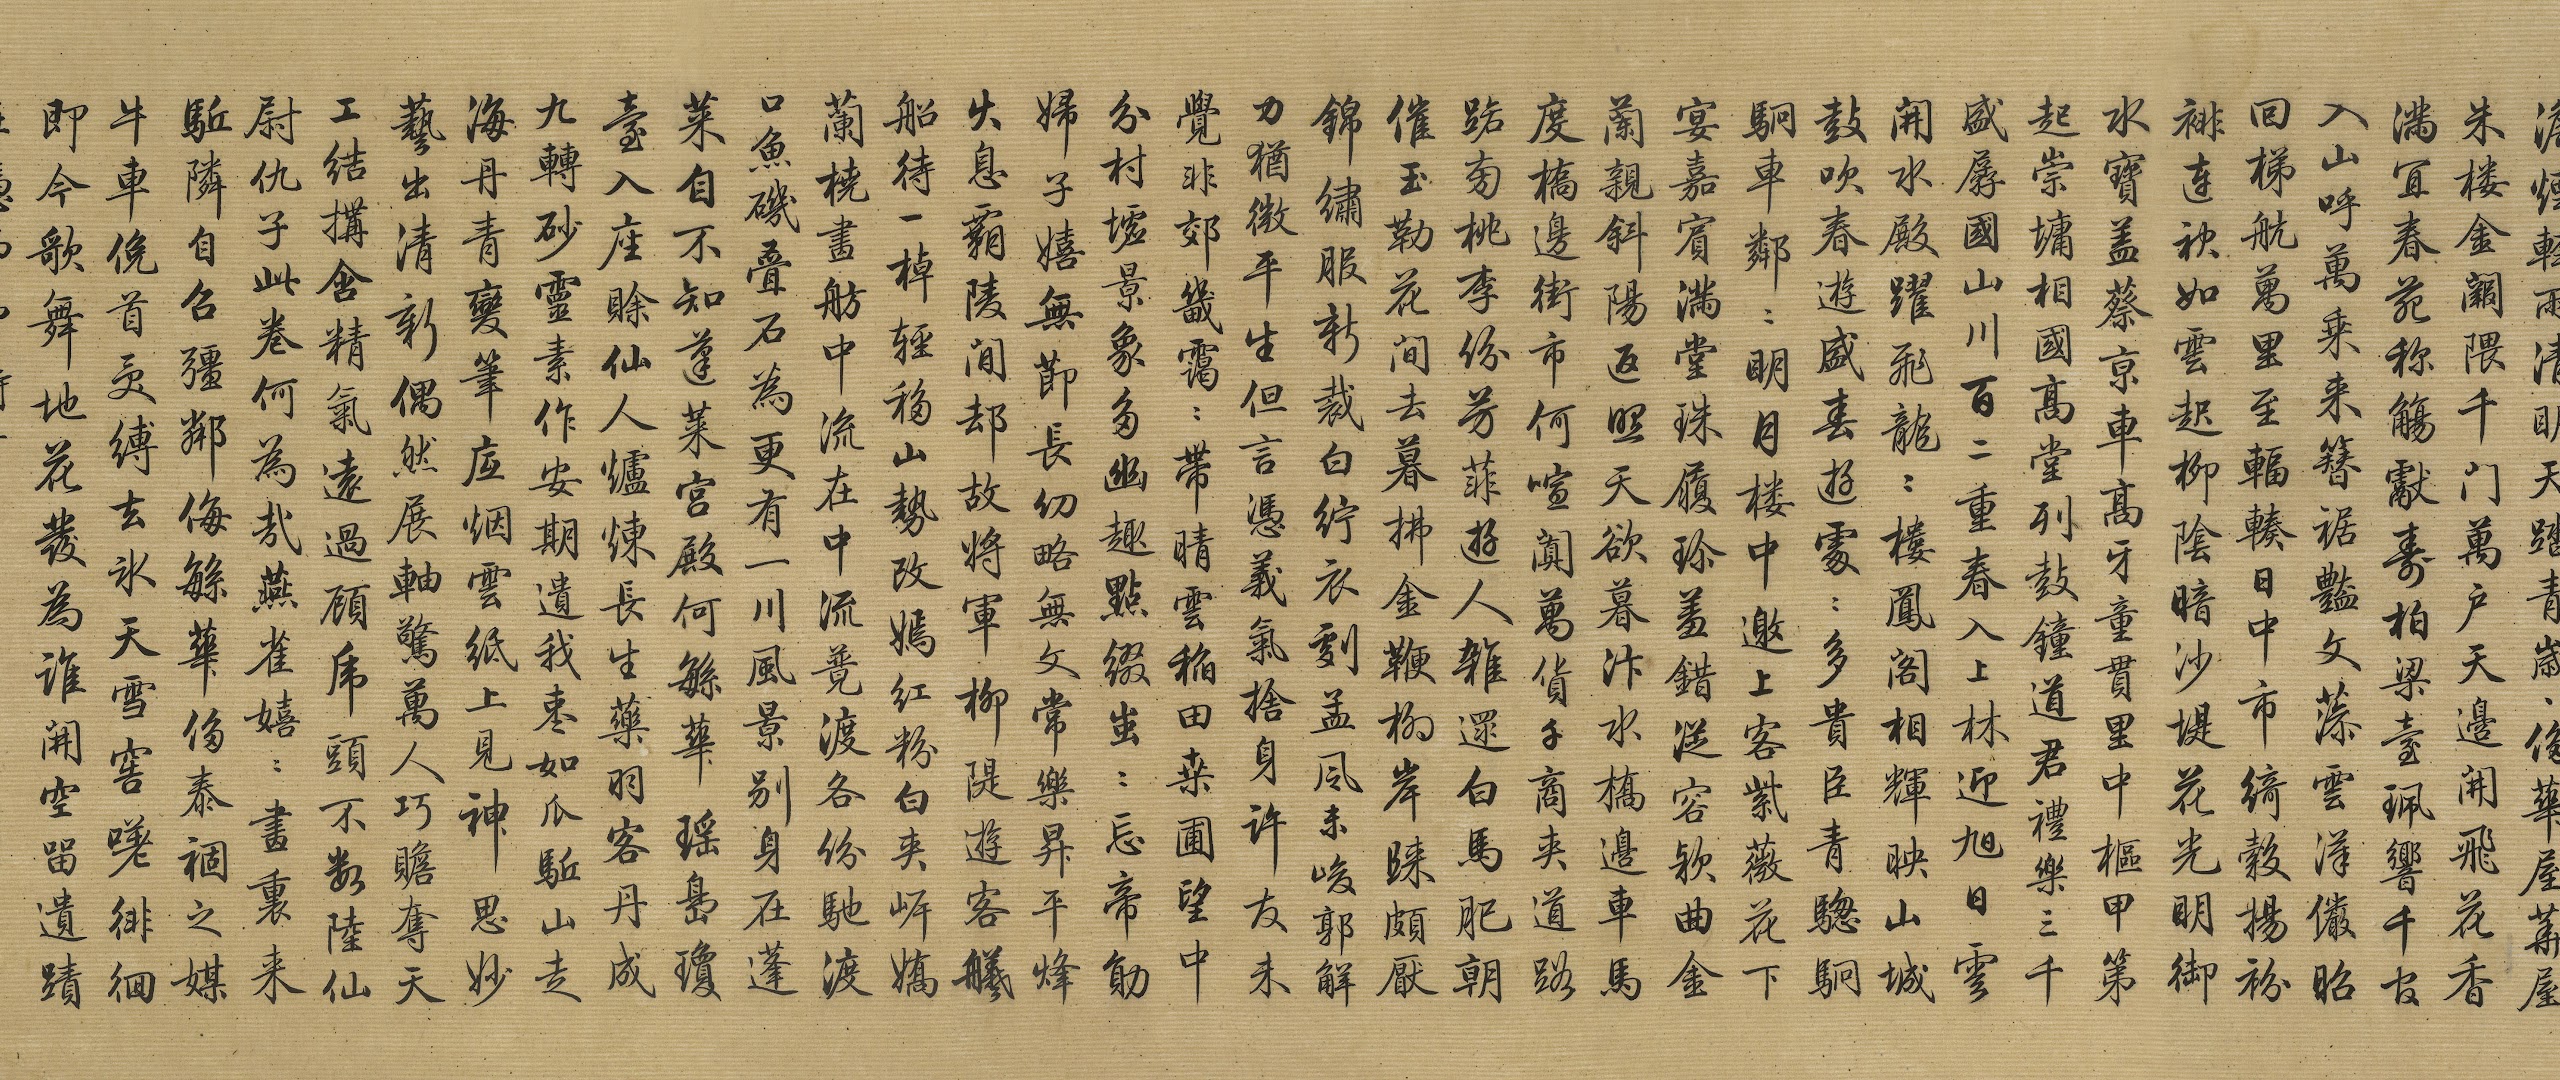 澹煙輕雨清明天踏青歲〻侈華屋華屋
朱楼金闕隈千门萬户天邊開飛花香
満宜春苑称觴獻壽柏梁臺珮響千官
入山呼萬乗来簪裾豔文藻雲漢儼昭
回梯航萬里至輻輳日中市綺縠揚袗
裶連袂如雲起柳陰暗沙堤花光明御
水寶蓋蔡京車髙牙童貫里中樞甲第
起崇墉相國髙堂列鼓鐘道君禮樂三千
盛孱國山川百二重春入上林迎旭日雲
開水殿躍飛龍〻樓鳳阁相輝映山城
鼓吹春遊盛春遊處〻多貴臣青驄駉
駉車鄰〻明月楼中邀上客紫薇花下
宴嘉賓満堂珠履珍羞錯從容欵曲金
蘭親斜陽返照天欲暮汴水橋邊車馬
度橋邊街市何喧闐萬貨千商夾道路
路旁桃李份芳菲遊人雜遝白馬肥朝
催玉勒花间去暮拂金鞭栁岸睐頗厭
錦繡服新裁白紵衣劉孟风未峻郭解
力猶微平生但言憑義氣捨身许友未
覺非郊畿靄〻帶晴雲稲田桒圃望中
分村墟景象多幽趣點缀出〻忘帝勛
婦子嬉無節長幼略無文常樂昇平烽
火息霸陵间却故将軍柳隄遊客艤
船待一棹輕移山勢改嫣红粉白夹岍嬌
蘭橈畫舫中流在中流競渡各份馳渡
口魚磯叠石為更有一川風景别身在蓬
莱自不知蓬莱宮殿何緐華瑶島瓊
臺入座賒仙人爐煉長生藥羽客丹成
九轉砂靈素作安期遺我枣如瓜駈山走
海丹青變筆底烟雲纸上見神思妙
藝出清新偶然展軸驚萬人巧贍奪天
工结搆含精氣遠過顾虎頭不数陸仙
尉仇子此卷何為哉燕雀嬉〻畫裏来
駈隣自召彊鄰侮緐華侈泰祸之媒
牛車俛首受縛去氷天雪窖嗟徘徊
即今歌舞地花發為谁開空留遺蹟